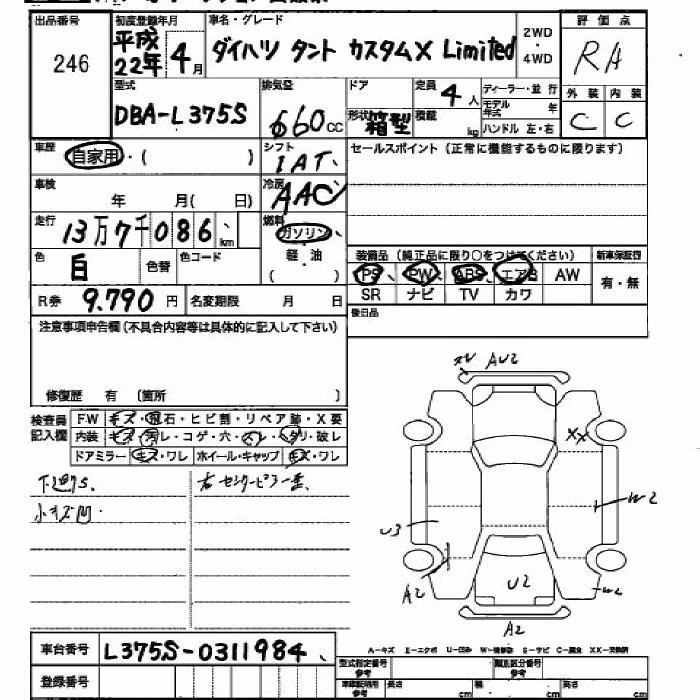 出品番号
246
初度登録年月
平成
22年 4月
車名・グレード
ダイハツ タント カスタムX Limited
2WD
・
4WD
評価点
RA
型式
DBA-L375S
排気量
660cc
ドア
形状 箱型
定員
4人
積載 kg
ディーラー・並行
モデル年式 年
ハンドル 左・右
外装 内装
C C
車歴
自家用・( )
シフト
IAT
セールスポイント（正常に機能するものに限ります）
車検
年 月( 日)
冷房
AAC
走行
13万7千086 km
燃料
ガソリン
軽・油
( )
色
白 色替 色コード
装備品（純正品に限り○をつけてください）
新車保証書
PS PW ABS エアB AW
有・無
SR ナビ TV カワ
R券 9.790円 名変期限 月 日
後日品
注意事項申告欄（不具合内容等は具体的に記入して下さい）
修復歴 有 〔箇所 〕
検査員
記入欄
FW キズ・飛石・ヒビ割・リペア跡・X要
内装 キズ・汚レ・コゲ・穴・スレ・ダリ・破レ
ドアミラー キズ・ワレ ホイール・キャップ キズ・ワレ
右センターピラー
小キズ凹
AU2
XX
W2
U3
A2
U2
W2
A2
A-キズ E-エクボ U-凹み W-補修跡 S-サビ C-腐食 XX-交換済
車台番号
L375S-0311984
型式指定番号
参考
類別区分番号
参考
登録番号
長さ cm 幅 cm 高さ cm